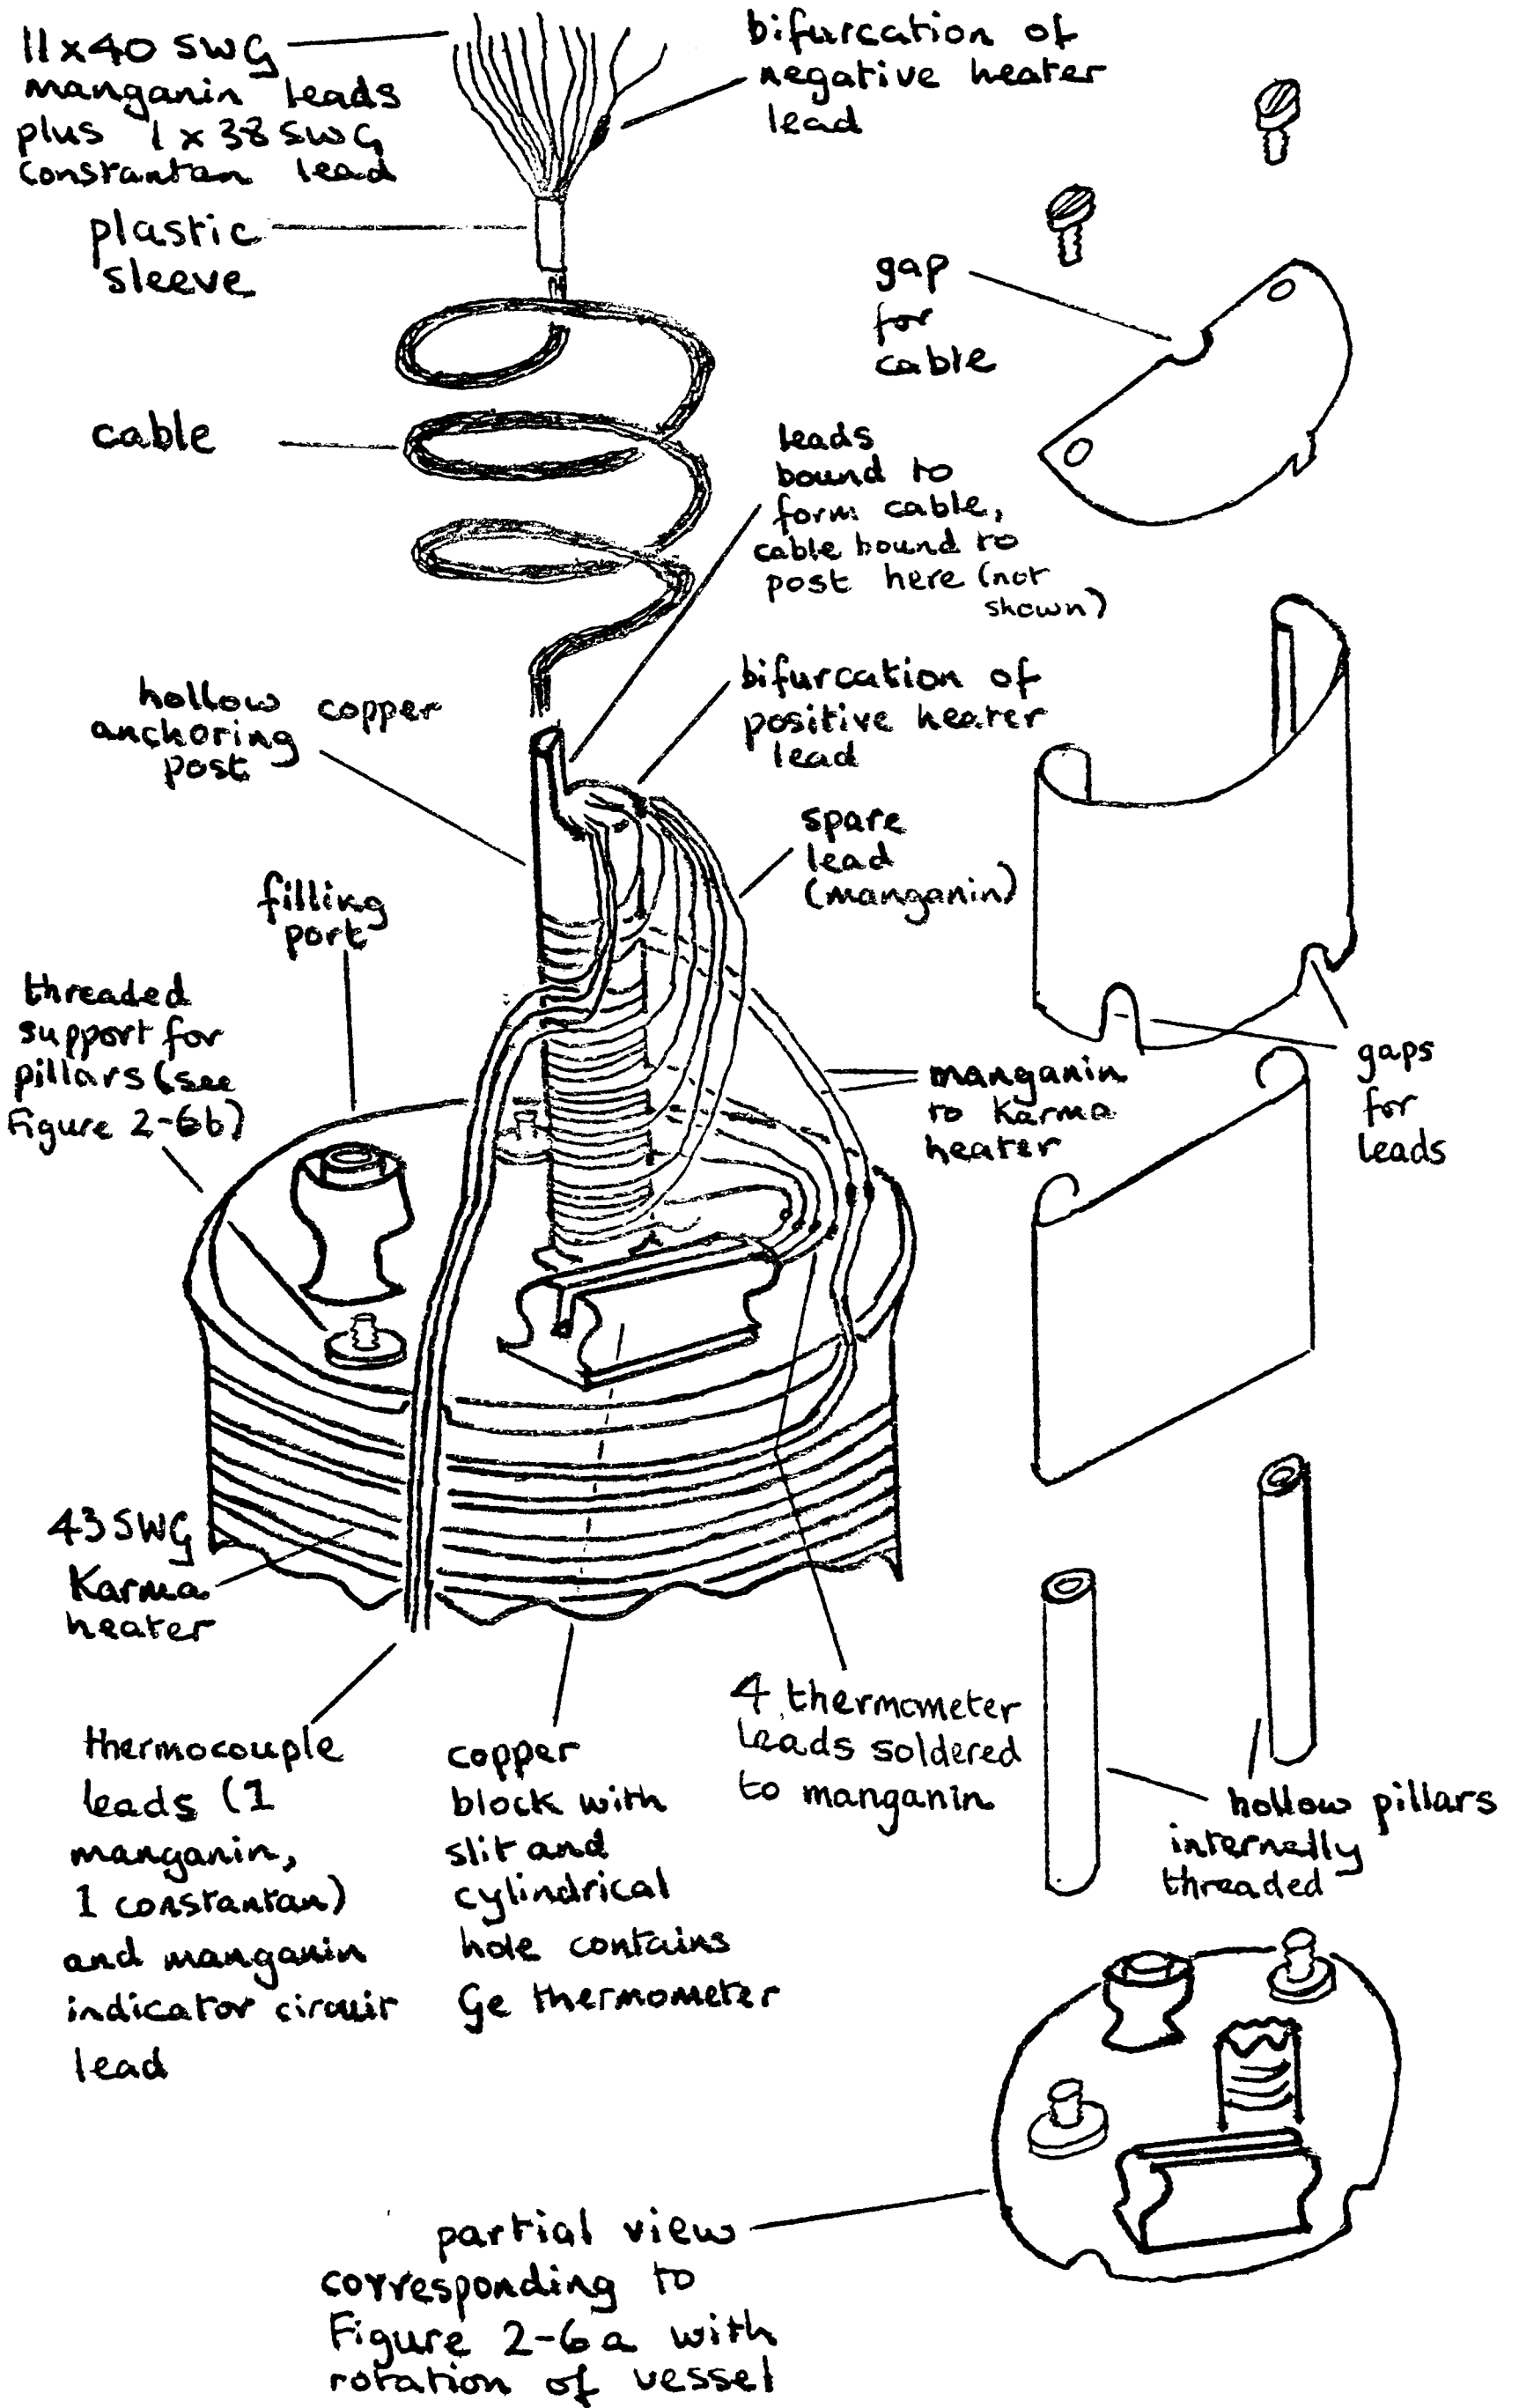 11x40 SWG
manganin leads
plus 1 x 38 SWG
constantan lead
bifurcation of
negative heater
lead
plastic
sleeve
gap
for
cable
cable
leads
bound to
form cable,
cable bound to
post here (not
shown)
hollow copper
anchoring
post
bifurcation of
positive heater
lead
spare
lead
(manganin)
filling
port
threaded
support for
pillars (see
Figure 2-6b)
manganin
to Karma
heater
gaps
for
leads
43 SWG
Karma
heater
thermocouple
leads (1
manganin,
1 constantan)
and manganin
indicator circuit
lead
copper
block with
slit and
cylindrical
hole contains
Ge thermometer
4 thermometer
leads soldered
to manganin
hollow pillars
internally
threaded
partial view
corresponding to
Figure 2-6a with
rotation of vessel